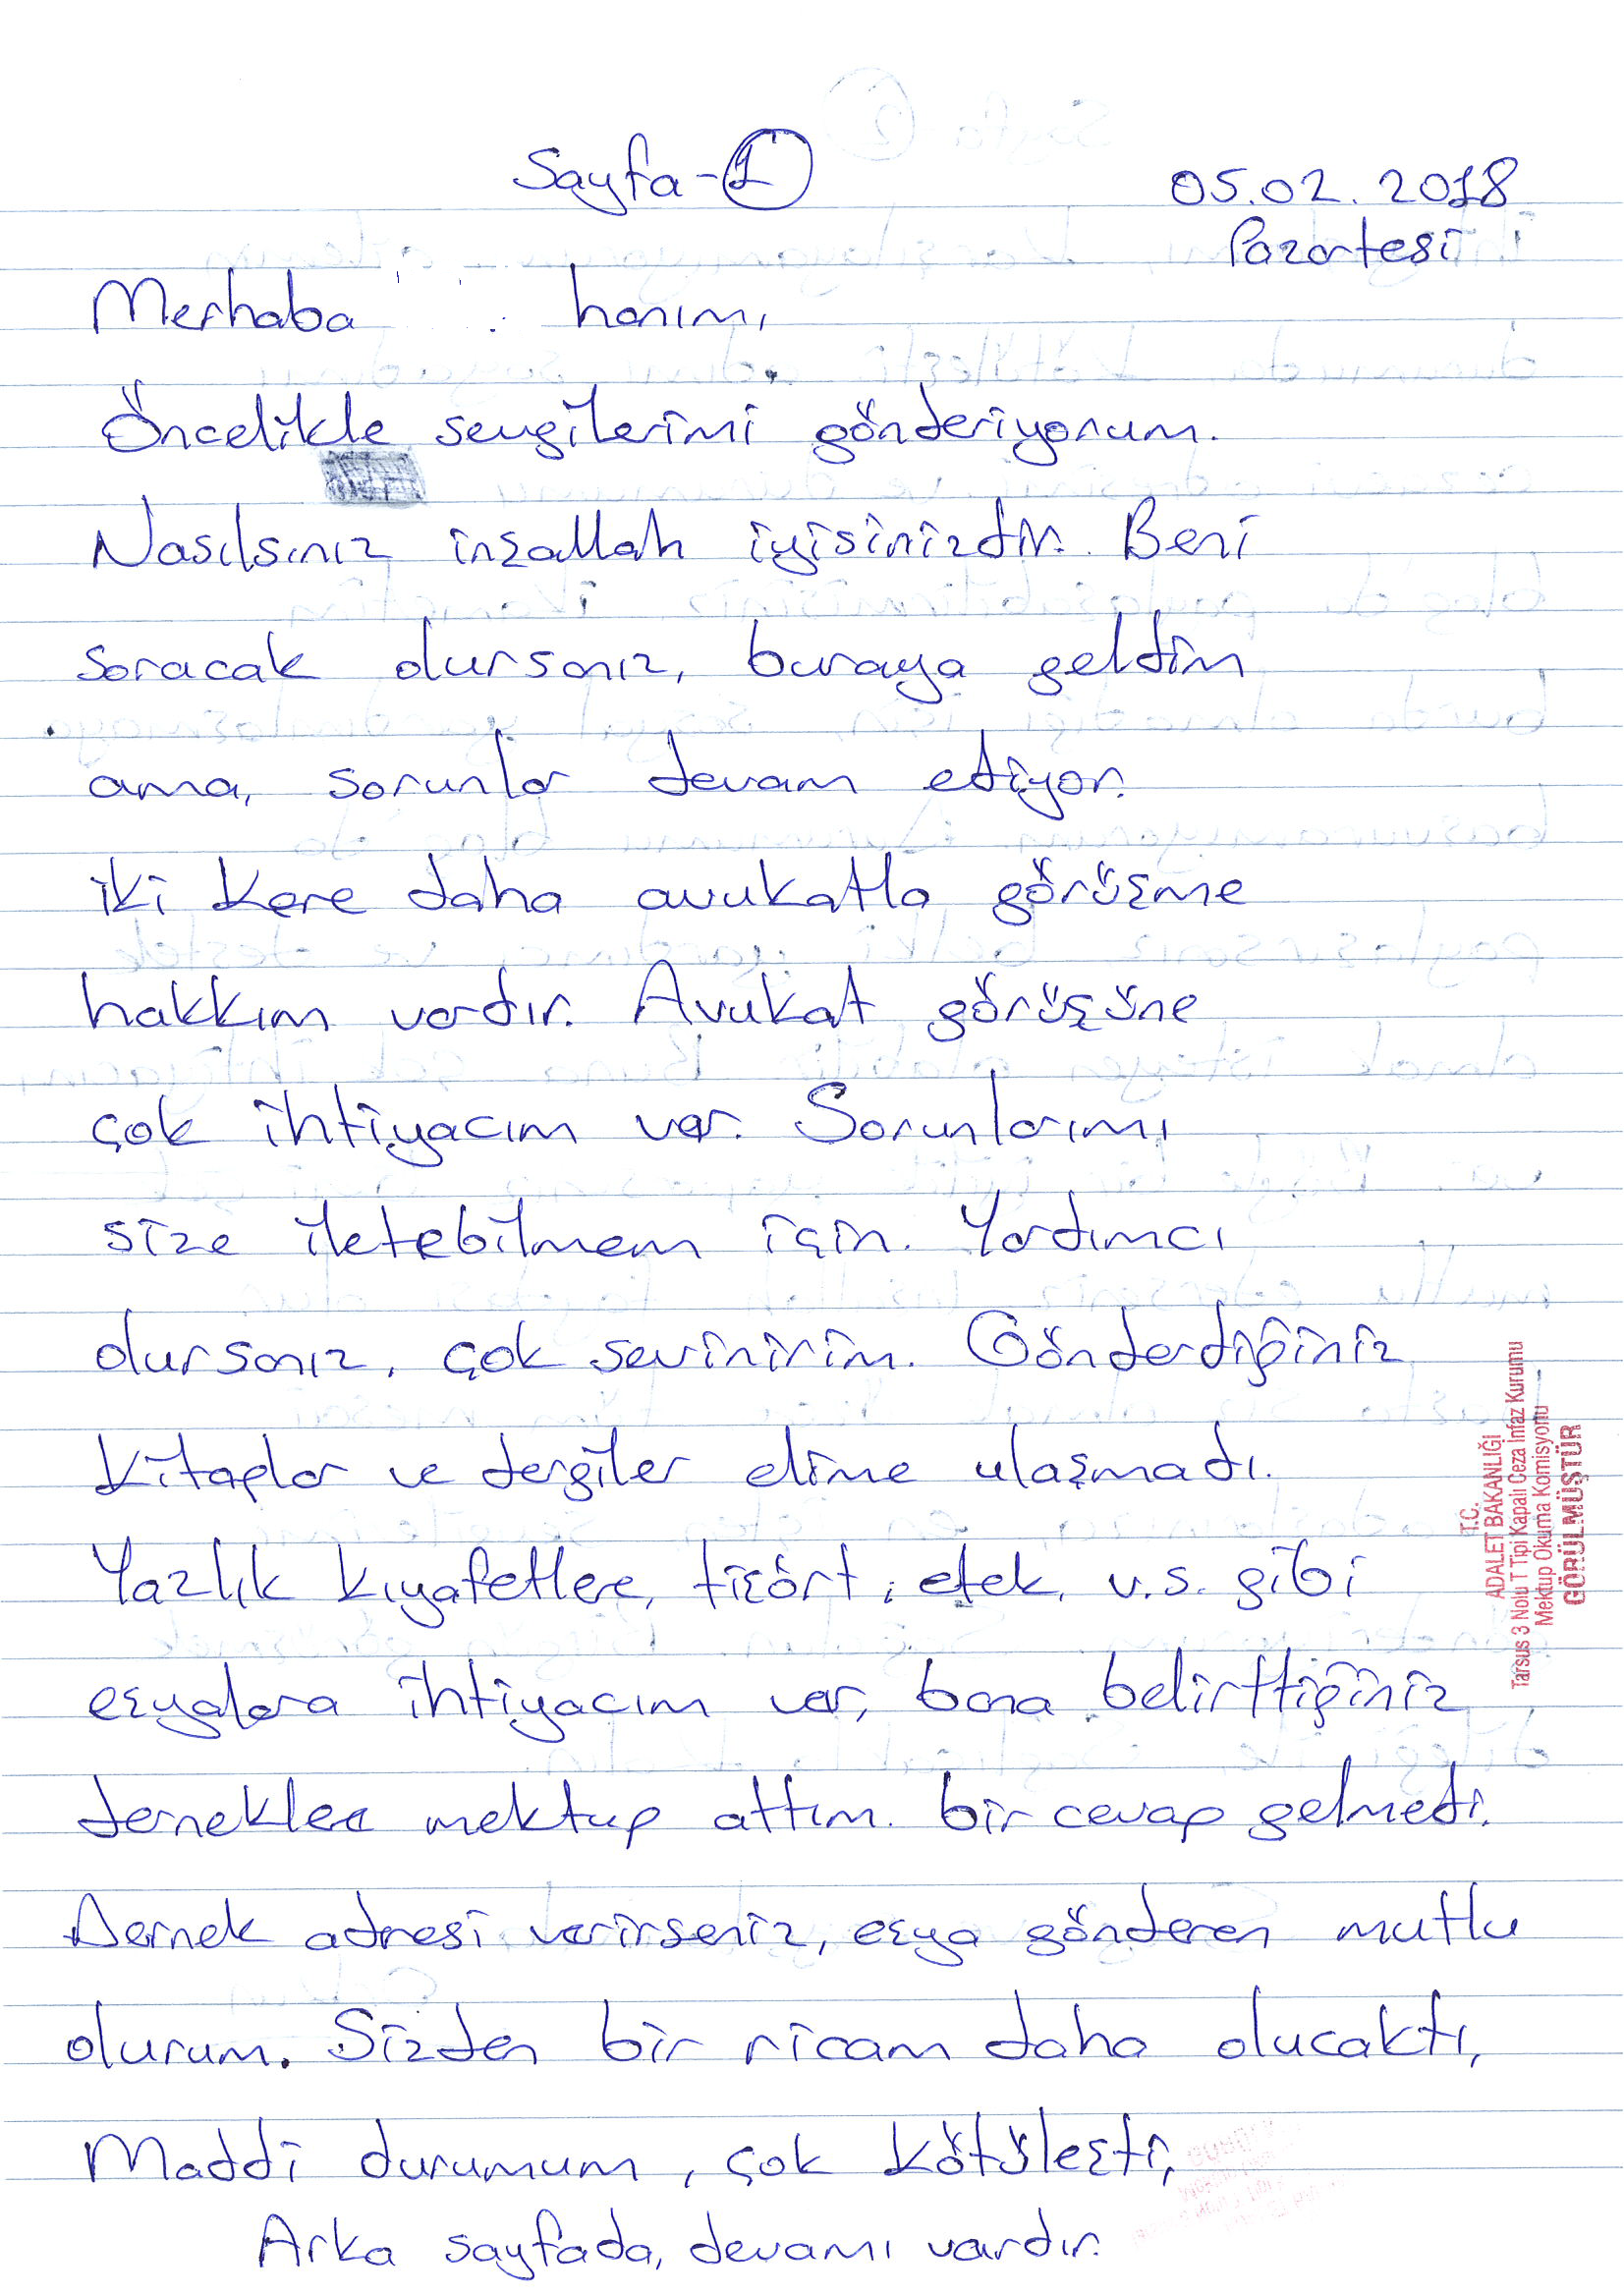 Sayfa-1
05.02.2018
Pazartesi
Merhaba hanım,
Öncelikle sevgilerimi gönderiyorum.
Nasılsınız inşallah iyisinizdir. Beni
soracak olursanız, buraya geldim
ama, sorunlar devam ediyor.
iki kere daha avukatla görüşme
hakkım vardır. Avukat görüşüne
çok ihtiyacım var. Sorunlarımı
size iletebilmem için. Yardımcı
olursanız, çok sevinirim. Gönderdiğiniz
kitaplar ve dergiler elime ulaşmadı.
Yazlık kıyafetlere, tişört, etek, v.s. gibi
eşyalara ihtiyacım var, bana belirttiğiniz
derneklere mektup attım. bir cevap gelmedi.
Dernek adresi verirseniz, eşya gönderen mutlu
olurum. Sizden bir ricam daha olucaktı,
Maddi durumum, çok kötüleşti,
Arka sayfada, devamı vardır.
T.C.
ADALET BAKANLIĞI
Tarsus 3 Nolu T Tipi Kapalı Ceza İnfaz Kurumu
Mektup Okuma Komisyonu
GÖRÜLMÜŞTÜR